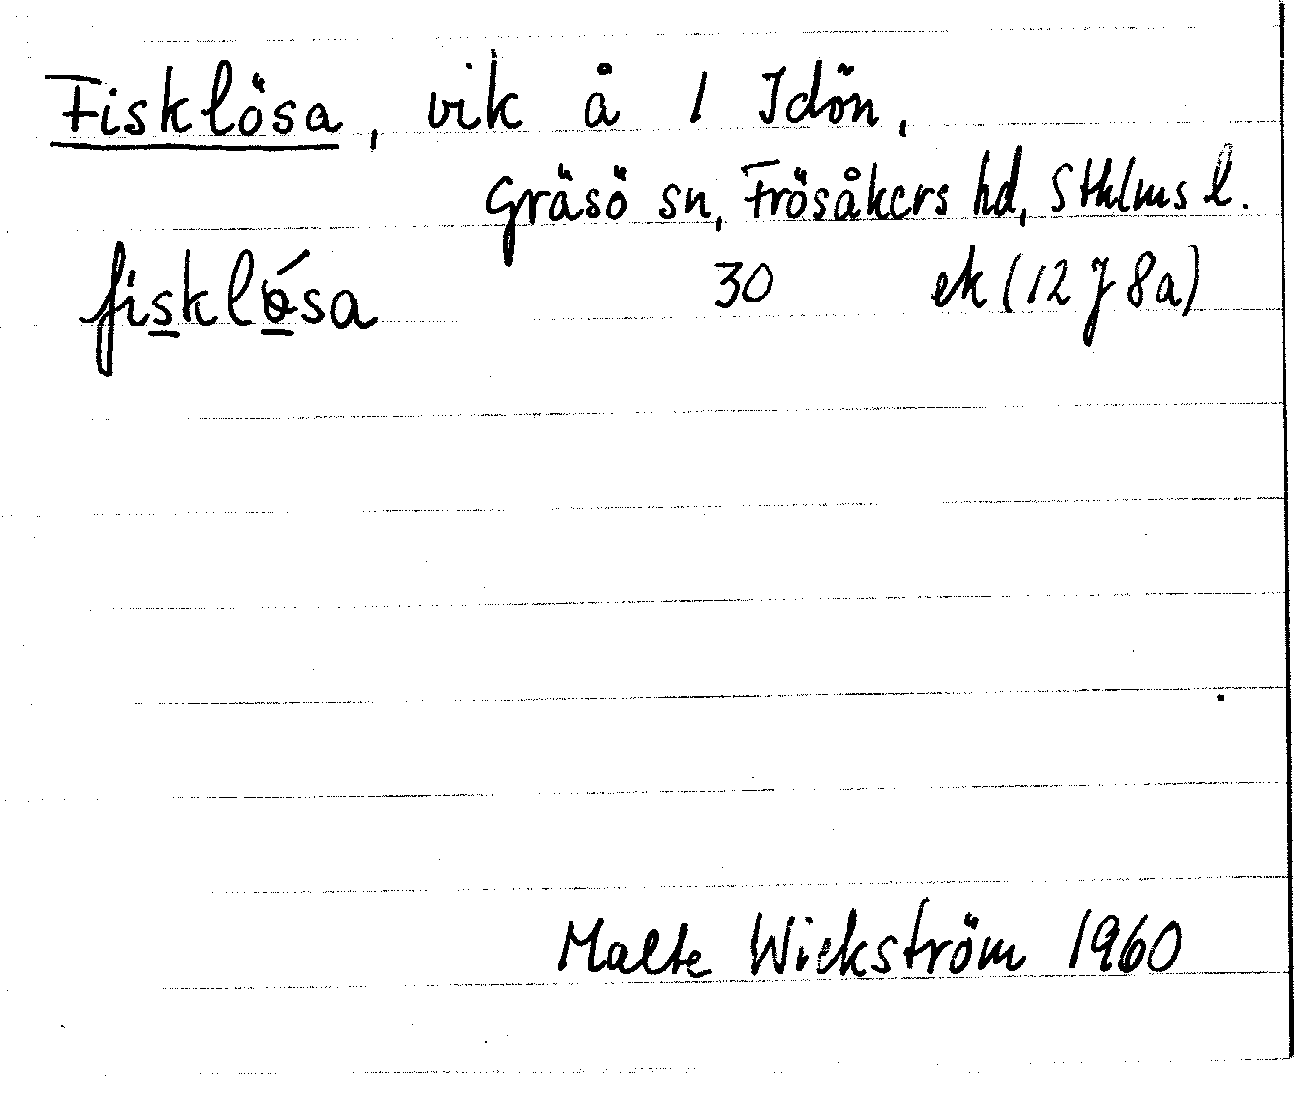 Fisklösa, vik å 1 Idön,
Gräsö sn, Frösåkers hd, Sthlms l.
fisklǿsa 30 ek (12 J 8a)
Malte Wickström 1960